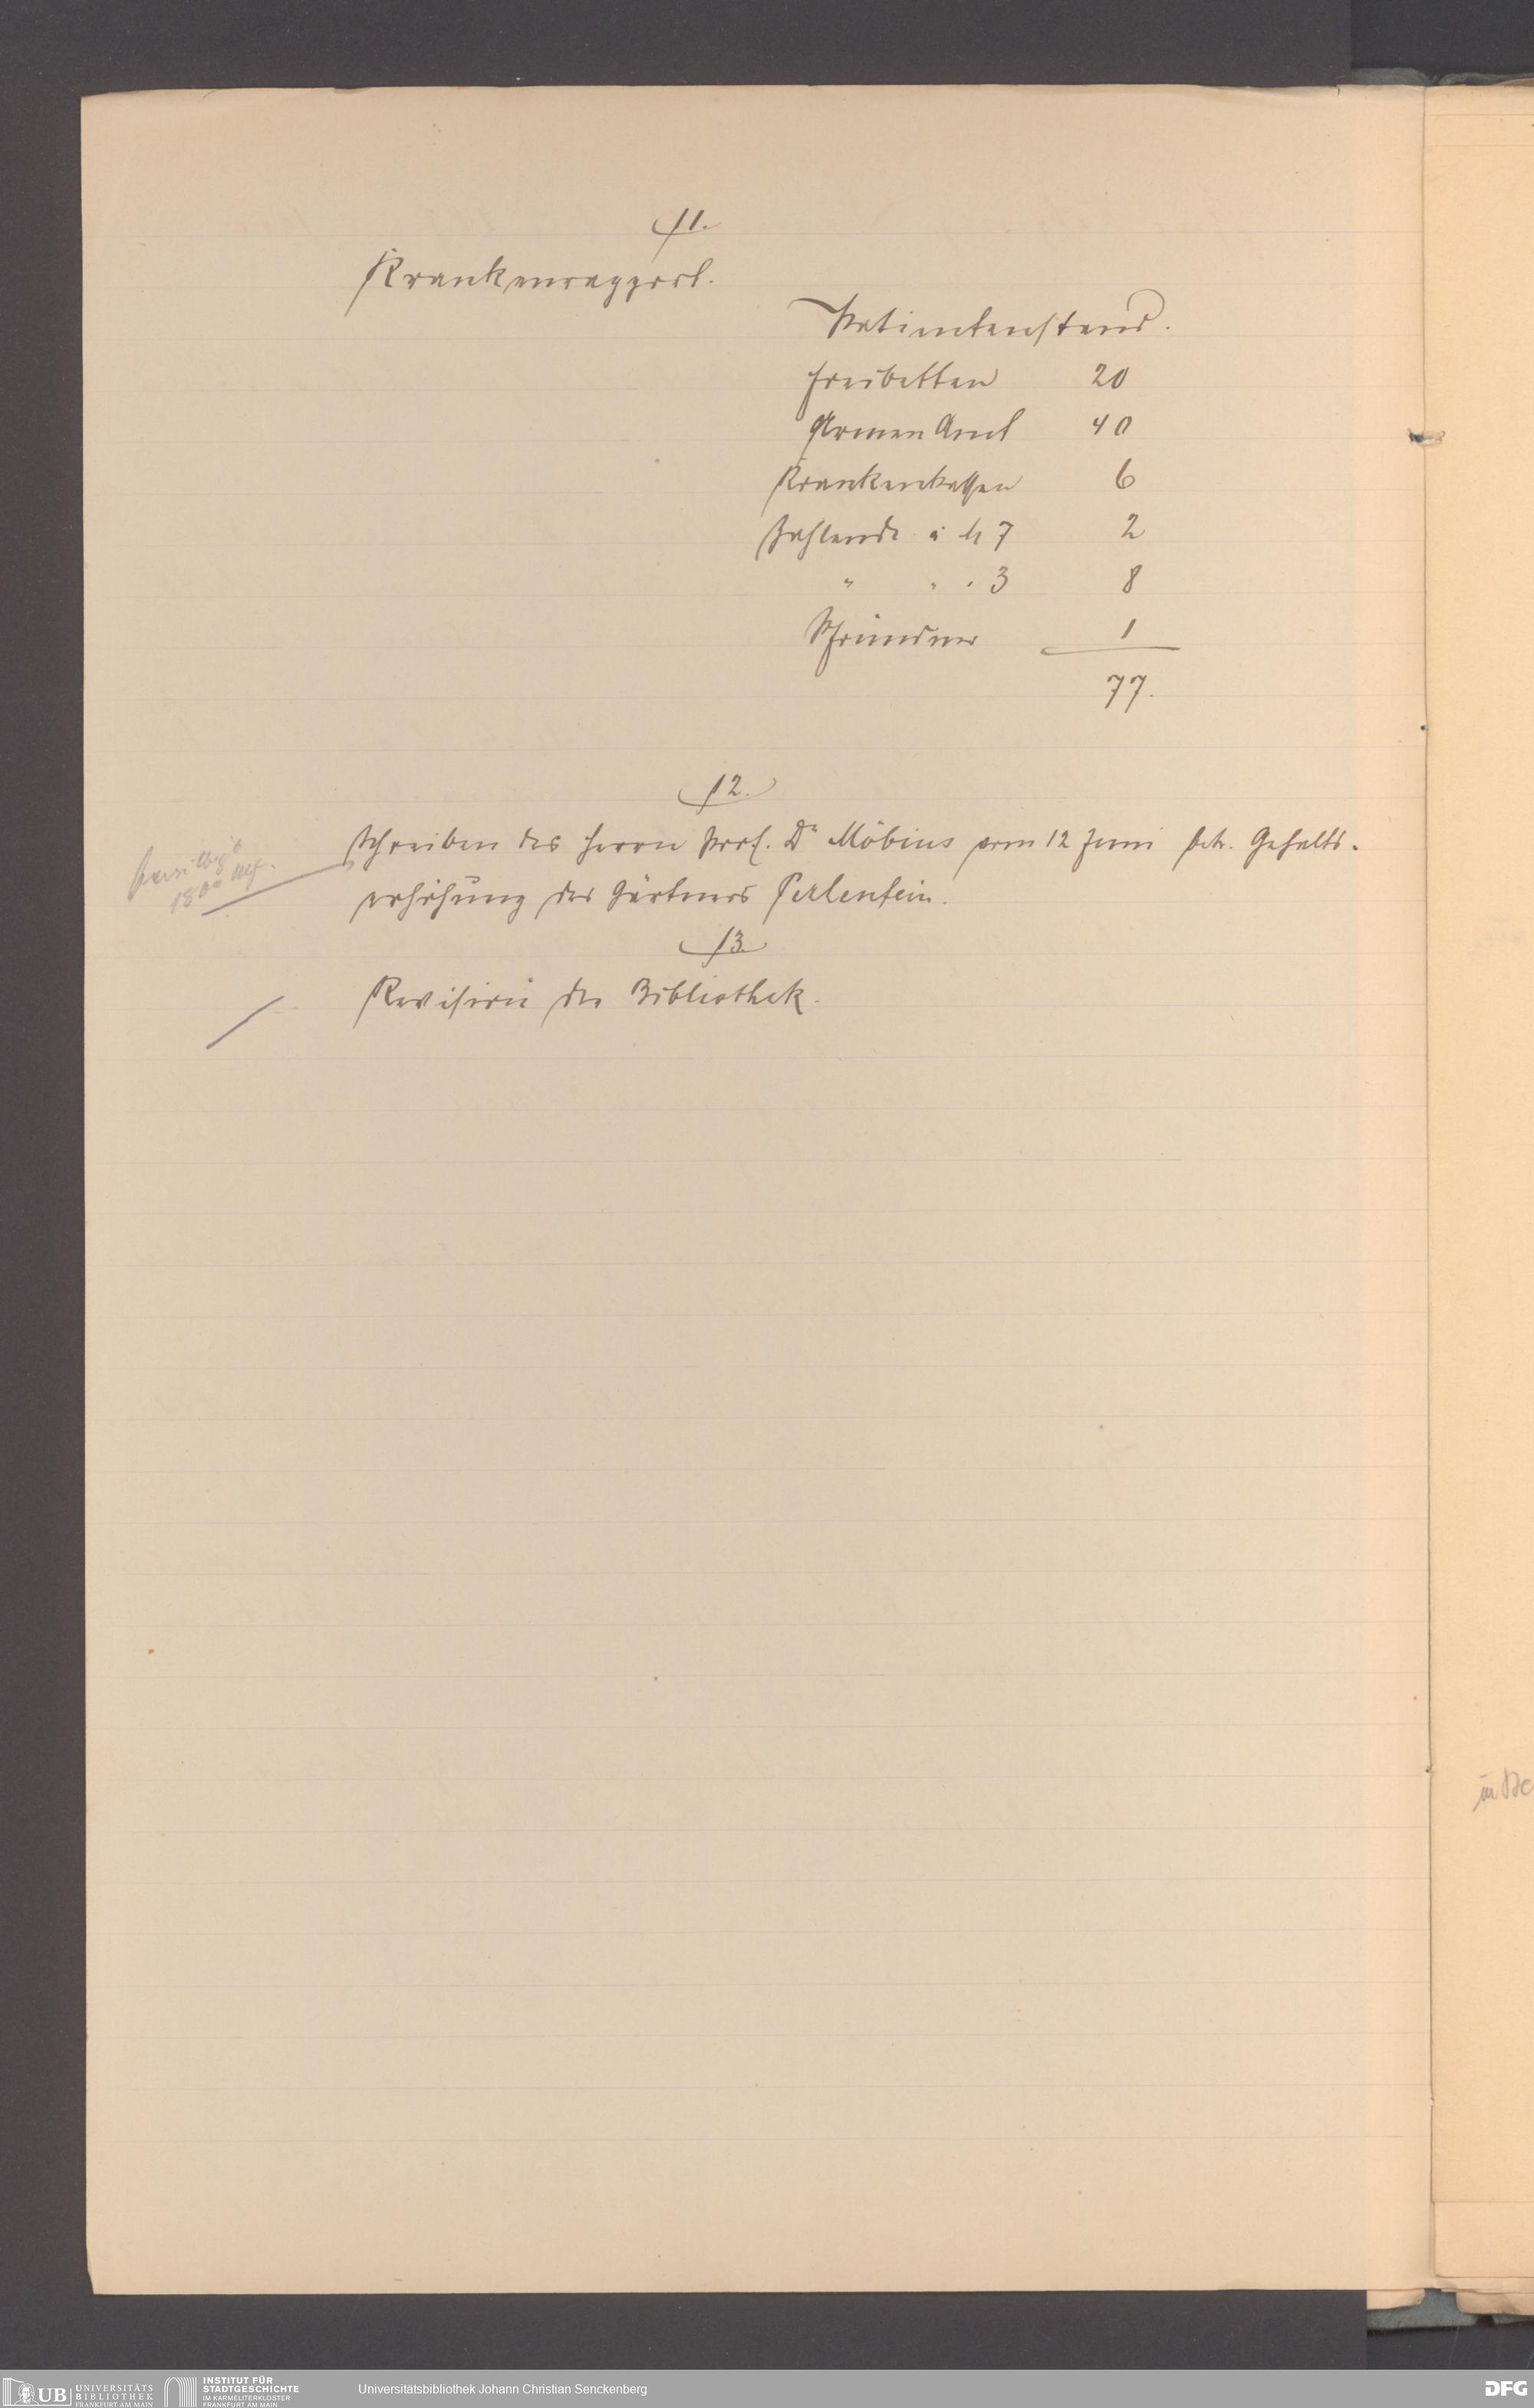 11.
Krankenrapport.
Patientenstand.
Freibetten 20
Armen Amt 40
Krankenkassen 6
Zahlende à M 7 2
" " " 3 8
Pfründner 1
77.
12.
bewilligt
1800 Mk.
Schreiben des Herrn Prof. Dr Möbius vom 12 Juni betr. Gehalts-
erhöhung des Gärtners Perlenfein.
13.
Revision der Bibliothek.
UB UNIVERSITÄTS BIBLIOTHEK FRANKFURT AM MAIN
INSTITUT FÜR STADTGESCHICHTE IM KARMELITERKLOSTER FRANKFURT AM MAIN
Universitätsbibliothek Johann Christian Senckenberg
DFG